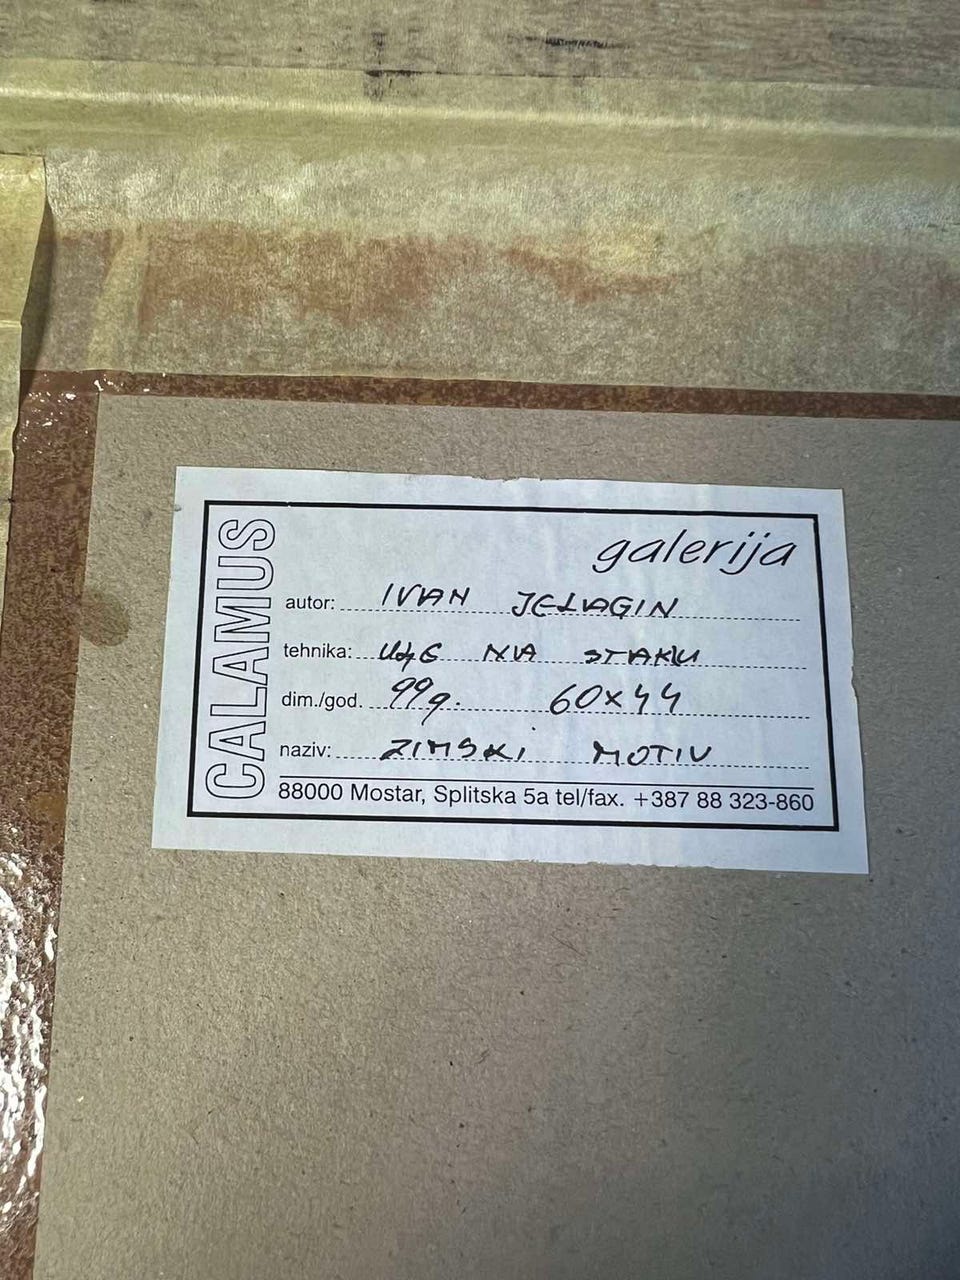 CALAMUS
galerija
autor: IVAN JELAGIN
tehnika: ULJE NA STAKLU
dim./god. 99g. 60x44
naziv: ZIMSKI MOTIV
88000 Mostar, Splitska 5a tel/fax. +387 88 323-860